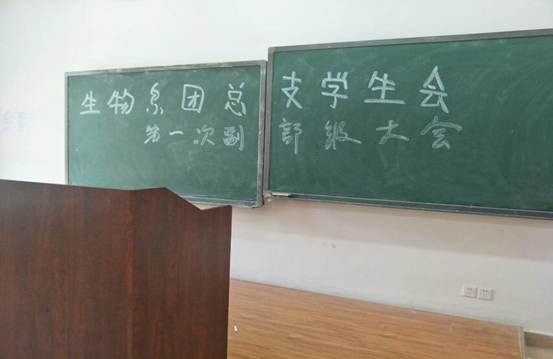 生物系团总支学生会
第一次副部级大会